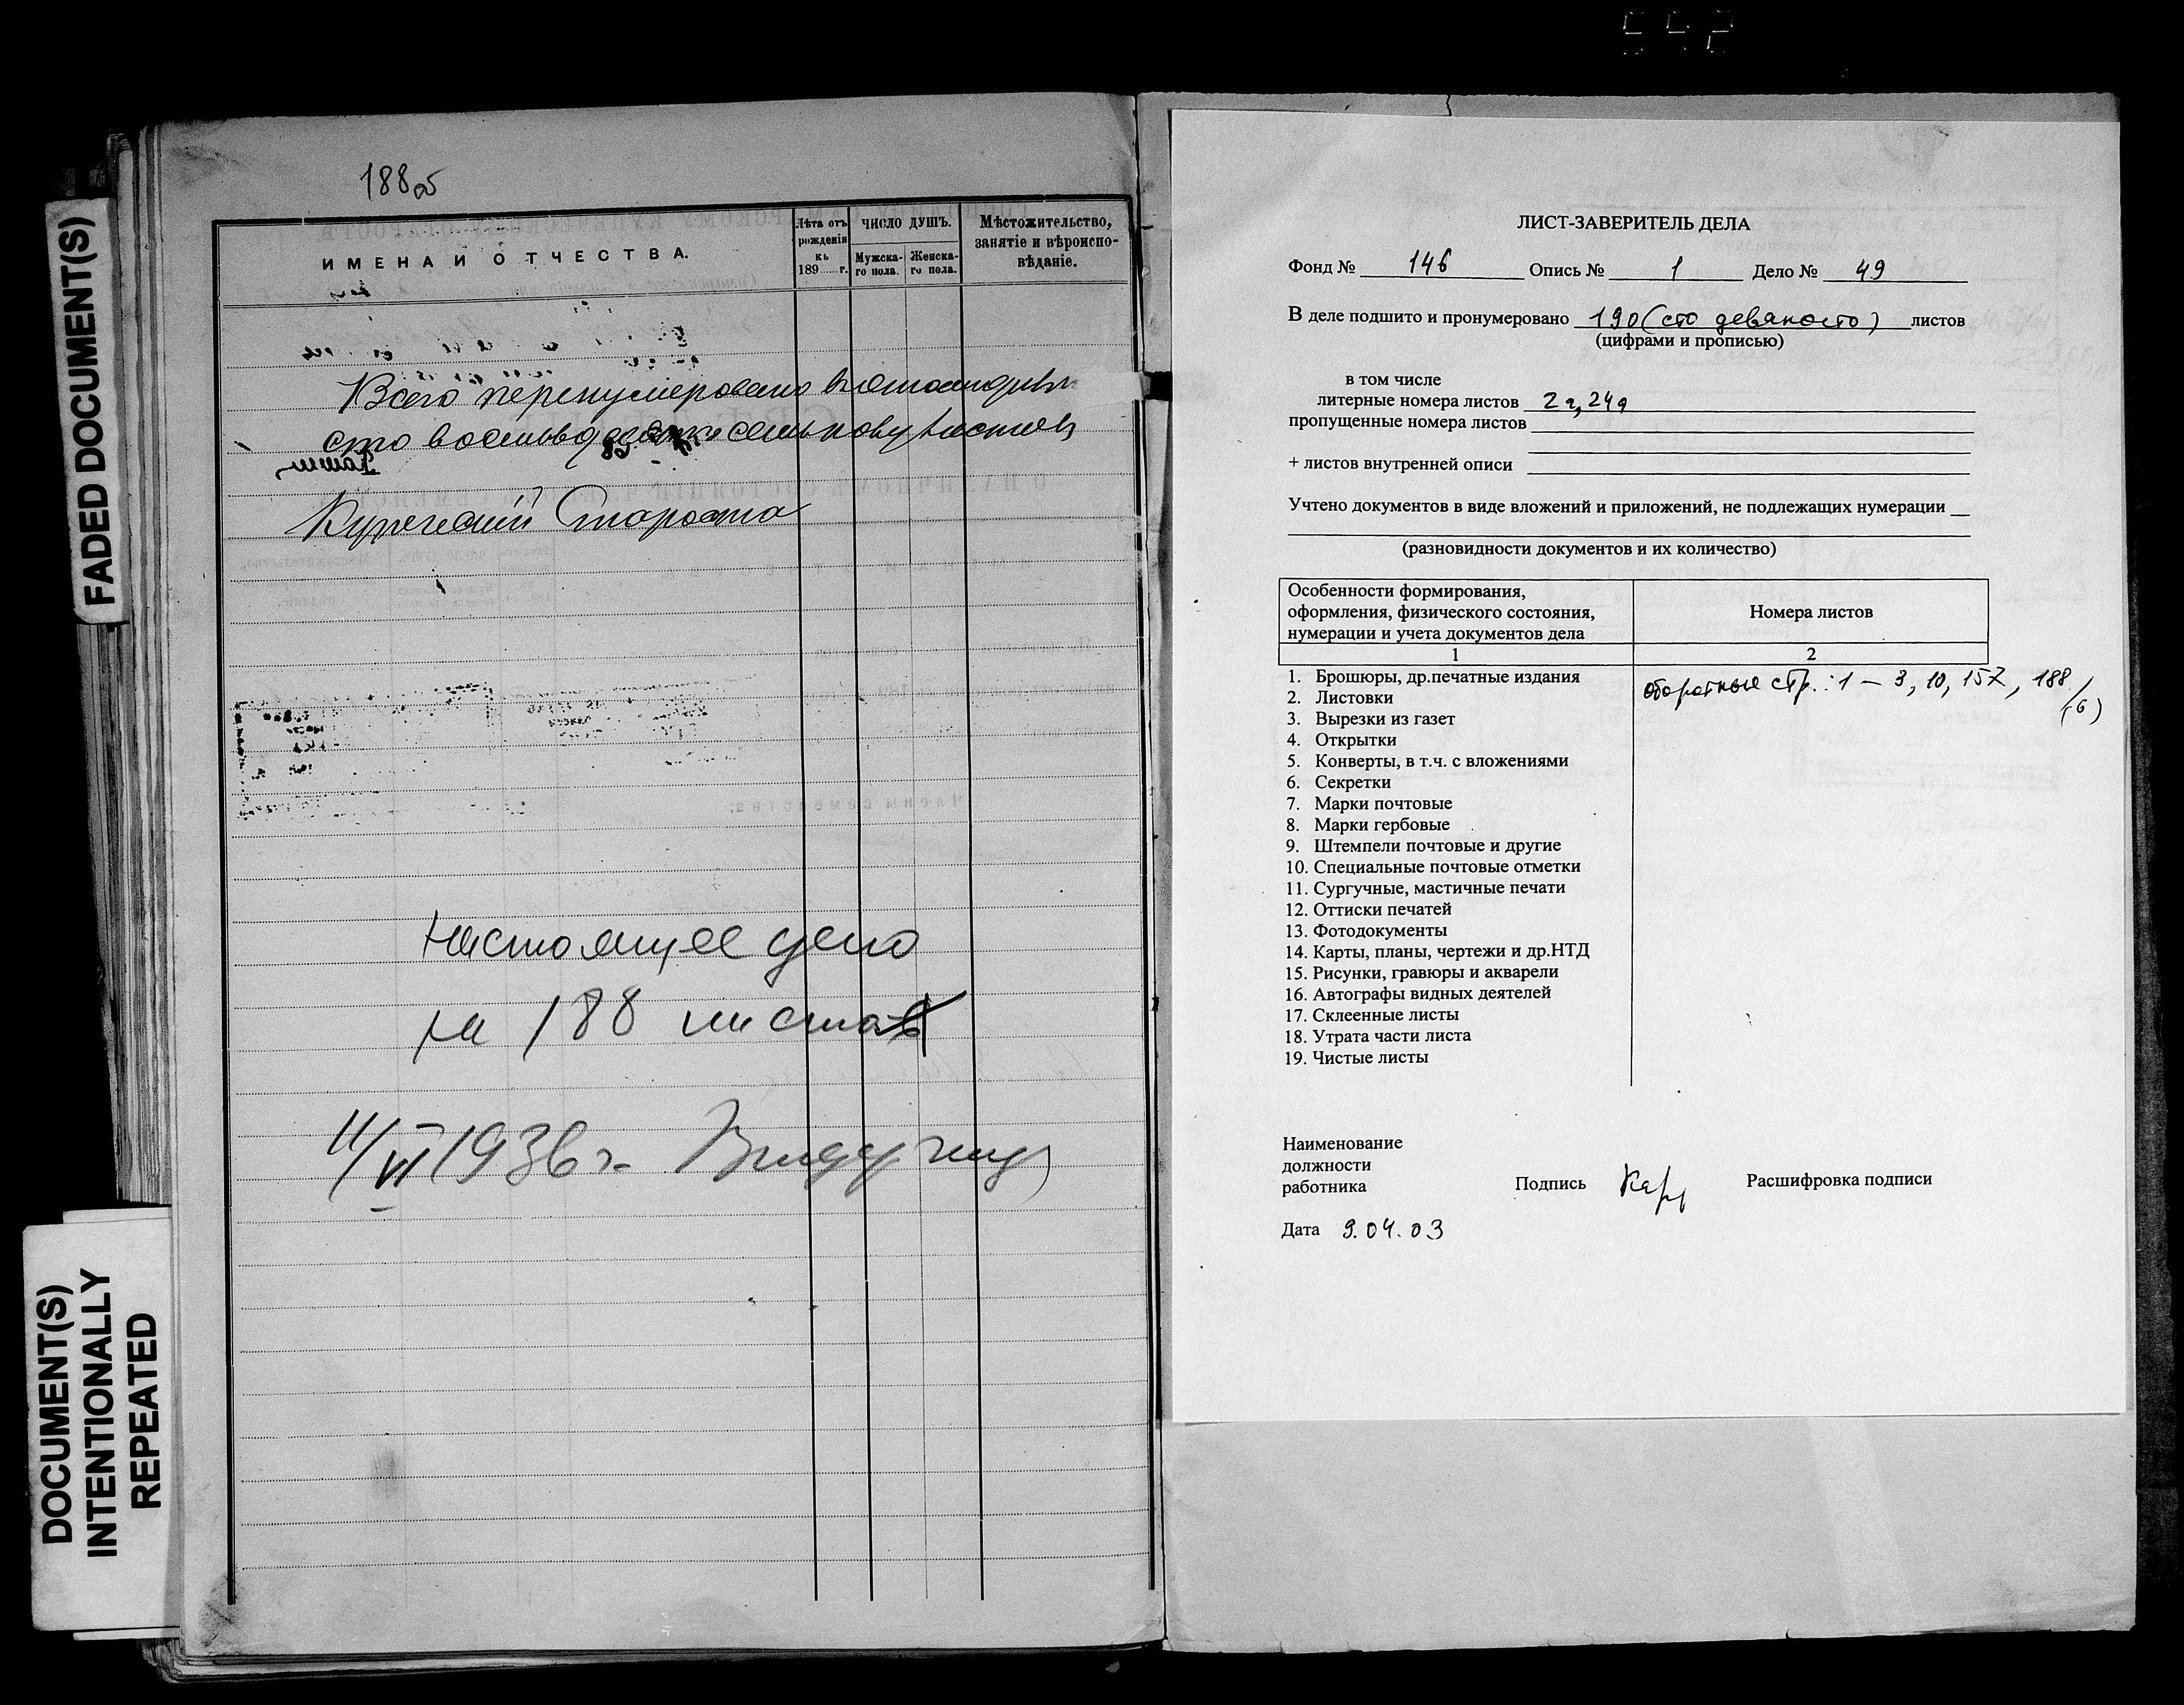 542
188 об
ИМЕНА И ОТЧЕСТВА.
Лѣта отъ рожденія къ 189......г.
ЧИСЛО ДУШЪ.
Мужска-го пола.
Женска-го пола.
Мѣстожительство, занятіе и вѣроиспо-вѣданіе.
Всего перенумеровано
сто восемьдесятъ семь листовъ
Купеческій Староста
Настоящее дело
на 188 листах
11/VI 1936 г.
FADED DOCUMENT(S)
DOCUMENT(S)
INTENTIONALLY
REPEATED
ЛИСТ-ЗАВЕРИТЕЛЬ ДЕЛА
Фонд № 146 Опись № 1 Дело № 49
В деле подшито и пронумеровано 190 (сто девяносто) листов
(цифрами и прописью)
в том числе
литерные номера листов 2а, 24а
пропущенные номера листов
+ листов внутренней описи
Учтено документов в виде вложений и приложений, не подлежащих нумерации
(разновидности документов и их количество)
Особенности формирования,
оформления, физического состояния,
нумерации и учета документов дела
Номера листов
1 2
1. Брошюры, др.печатные издания
оборотные стр.: 1 – 3, 10, 157, 188
(6)
2. Листовки
3. Вырезки из газет
4. Открытки
5. Конверты, в т.ч. с вложениями
6. Секретки
7. Марки почтовые
8. Марки гербовые
9. Штемпели почтовые и другие
10. Специальные почтовые отметки
11. Сургучные, мастичные печати
12. Оттиски печатей
13. Фотодокументы
14. Карты, планы, чертежи и др.НТД
15. Рисунки, гравюры и акварели
16. Автографы видных деятелей
17. Склеенные листы
18. Утрата части листа
19. Чистые листы
Наименование
должности
работника
Подпись Расшифровка подписи
Дата 9.04.03